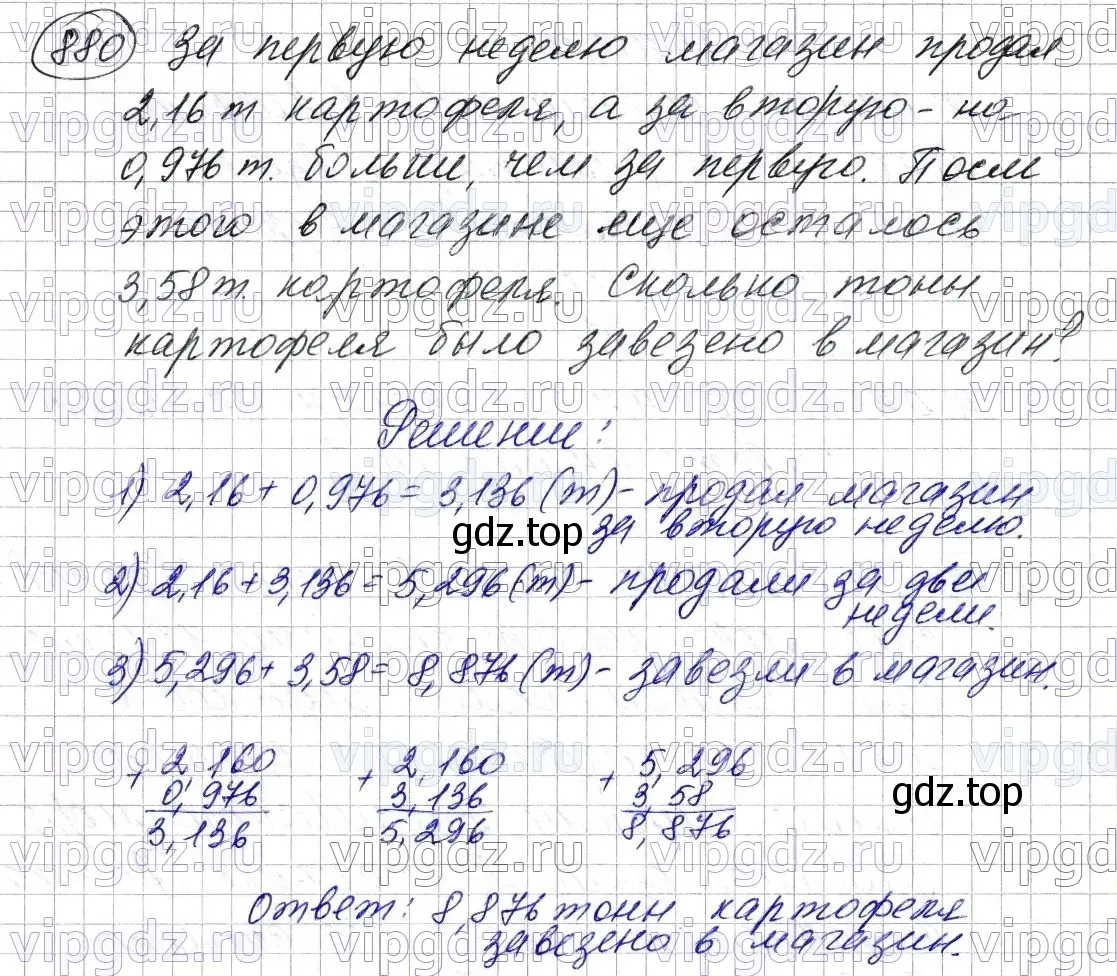 880 За первую неделю магазин продал
2,16 т картофеля, а за вторую - на
0,976 т. больше, чем за первую. После
этого в магазине еще осталось
3,58 т. картофеля. Сколько тонн
картофеля было завезено в магазин?
Решение:
1) 2,16 + 0,976 = 3,136 (т) - продал магазин
за вторую неделю.
2) 2,16 + 3,136 = 5,296 (т) - продали за две
недели.
3) 5,296 + 3,58 = 8,876 (т) - завезли в магазин.
+ 2,160 + 2,160 + 5,296
0,976 3,136 3,58
3,136 5,296 8,876
Ответ: 8,876 тонн картофеля
завезено в магазин.
gdz.top
gdz.top
vipgdz.ru